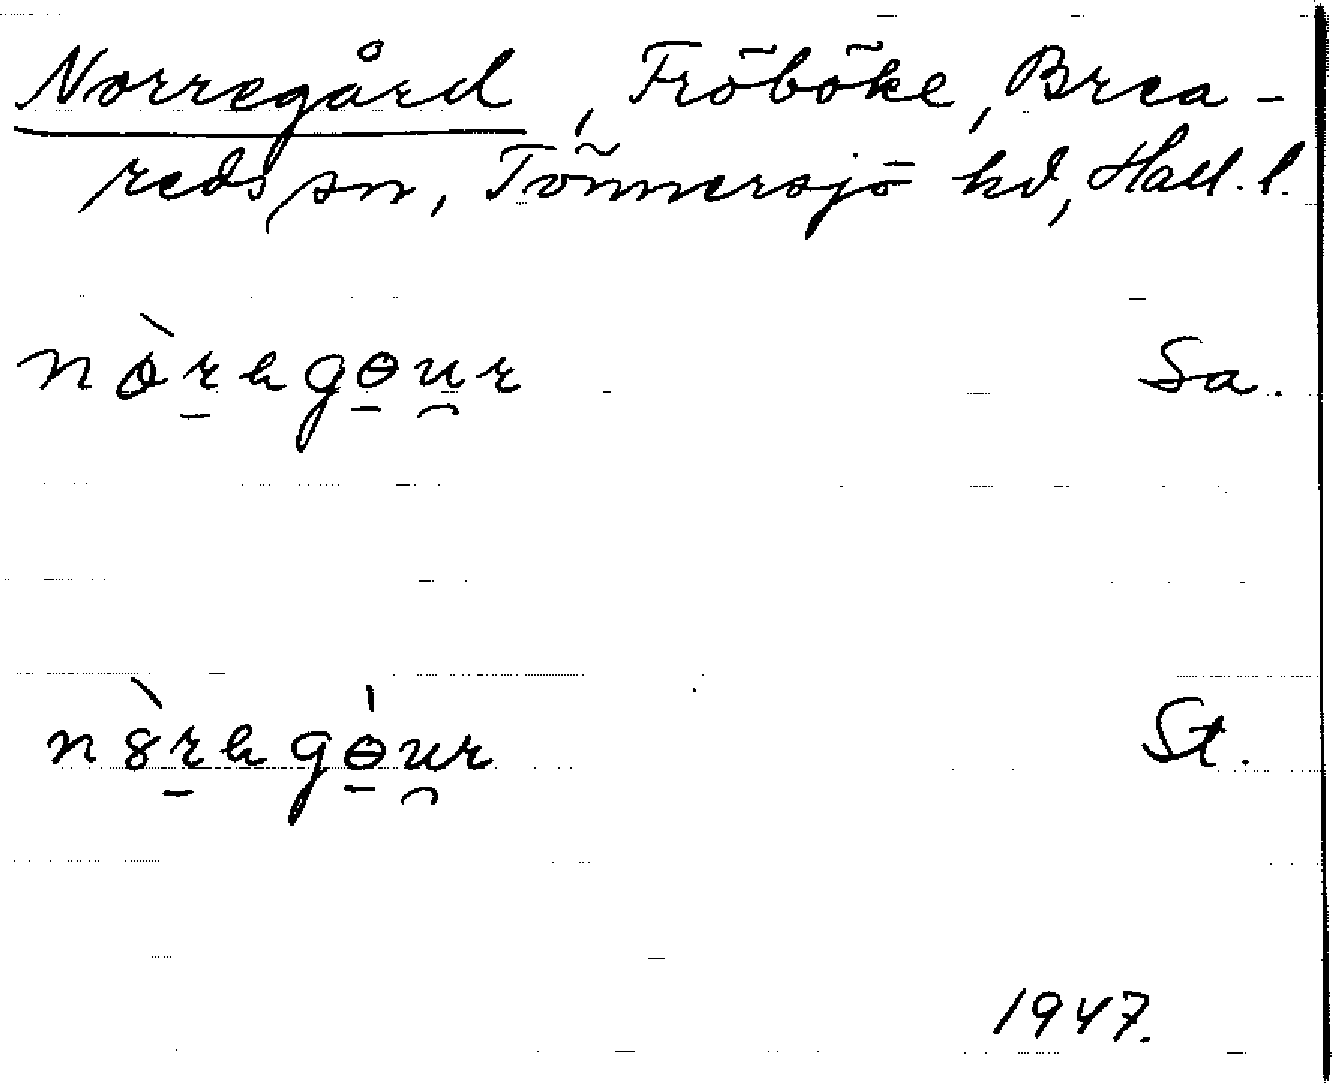 Norregård, Fröböke, Brea-
reds sn, Tönnersjö hd, Hall. l.
nò̠rəgɵ̠u̯r Sa.
n8̀r̠əgɵ̠́u̯r St.
1947.